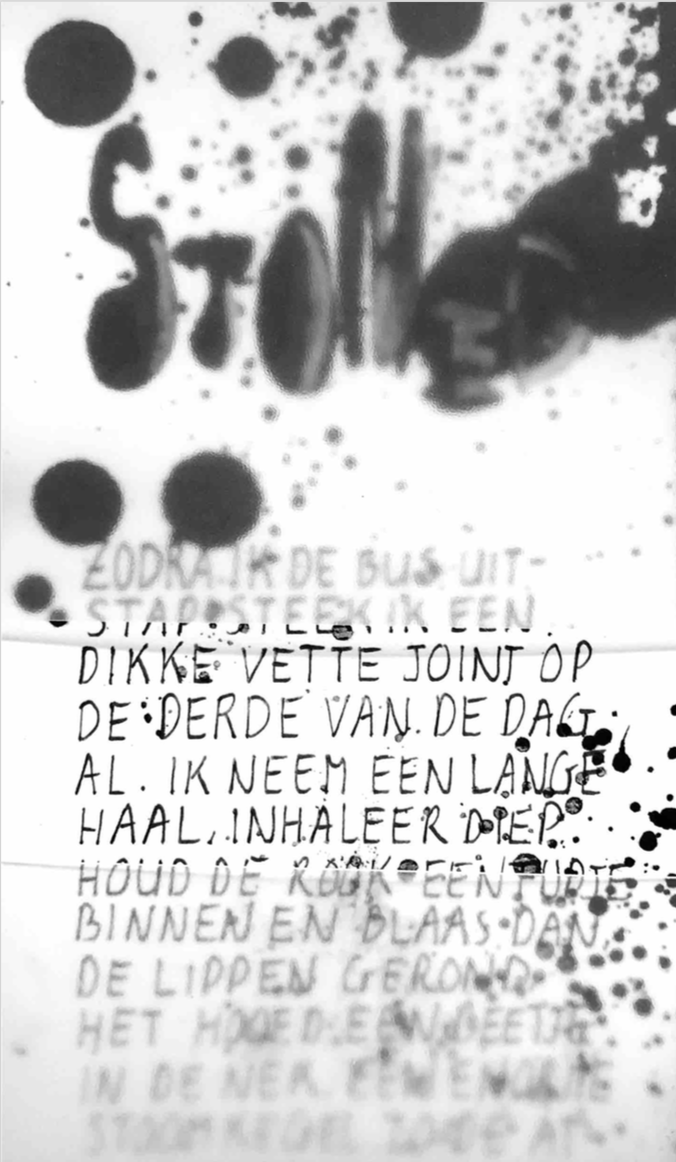 STONED
ZODRA IK DE BUS UIT-
STAP STEEK IK EEN
DIKKE VETTE JOINT OP
DE DERDE VAN DE DAG
AL. IK NEEM EEN LANGE
HAAL, INHALEER DIEP
HOUD DE ROOK EEN TIJDJE
BINNEN EN BLAAS DAN
DE LIPPEN GEROND
HET HOOFD EEN BEETJE
IN DE NEK EEN ENORME